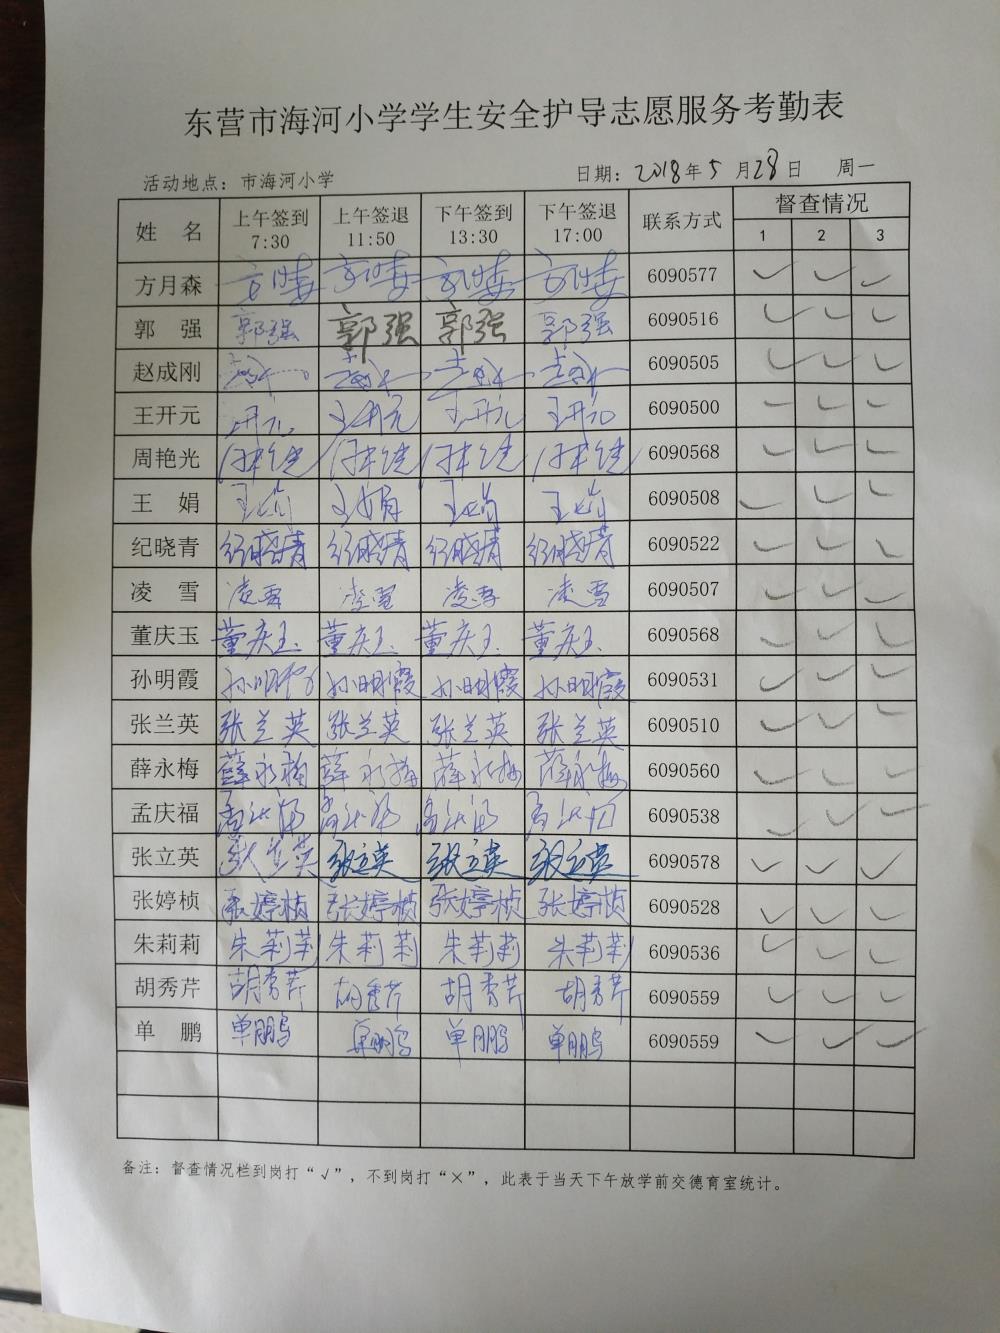 东营市海河小学学生安全护导志愿服务考勤表
活动地点：市海河小学 日期：2018年5月28日 周一
姓 名 上午签到 7:30 上午签退 11:50 下午签到 13:30 下午签退 17:00 联系方式 督查情况
1 2 3
方月森 6090577 ✓ ✓ ✓
郭 强 郭强 郭强 郭强 郭强 6090516 ✓ ✓ ✓
赵成刚 6090505 ✓ ✓ ✓
王开元 王开元 王开元 王开元 6090500 ✓ ✓ ✓
周艳光 6090568 ✓ ✓ ✓
王 娟 王娟 王娟 王娟 王娟 6090508 ✓ ✓ ✓
纪晓青 纪晓青 纪晓青 纪晓青 纪晓青 6090522 ✓ ✓ ✓
凌 雪 凌雪 凌雪 凌雪 凌雪 6090507 ✓ ✓ ✓
董庆玉 董庆玉 董庆玉 董庆玉 董庆玉 6090568 ✓ ✓ ✓
孙明霞 孙明霞 孙明霞 孙明霞 孙明霞 6090531 ✓ ✓ ✓
张兰英 张兰英 张兰英 张兰英 张兰英 6090510 ✓ ✓ ✓
薛永梅 薛永梅 薛永梅 薛永梅 薛永梅 6090560 ✓ ✓ ✓
孟庆福 6090538 ✓ ✓ ✓
张立英 张立英 张立英 张立英 张立英 6090578 ✓ ✓ ✓
张婷桢 张婷桢 张婷桢 张婷桢 张婷桢 6090528 ✓ ✓ ✓
朱莉莉 朱莉莉 朱莉莉 朱莉莉 朱莉莉 6090536 ✓ ✓ ✓
胡秀芹 胡秀芹 胡秀芹 胡秀芹 胡秀芹 6090559 ✓ ✓ ✓
单 鹏 单鹏 单鹏 单鹏 单鹏 6090559 ✓ ✓ ✓
备注：督查情况栏到岗打“√”，不到岗打“×”，此表于当天下午放学前交德育室统计。